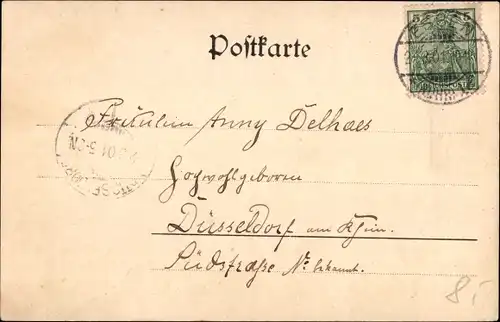 Postkarte
5 5
Fräulein Anny Delhaes
Hochwohlgeboren
Düsseldorf am Rhein.
Südstraße No bekannt.
8.-